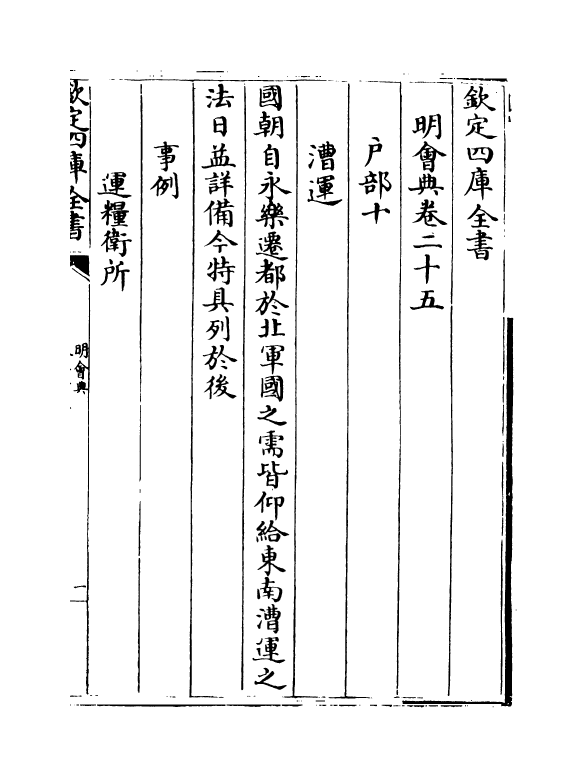 欽定四庫全書
明會典卷二十五
戶部十
漕運
國朝自永樂遷都於北軍國之需皆仰給東南漕運之
法日益詳備今特具列於後
事例
運糧衛所
欽定四庫全書
明會典
一